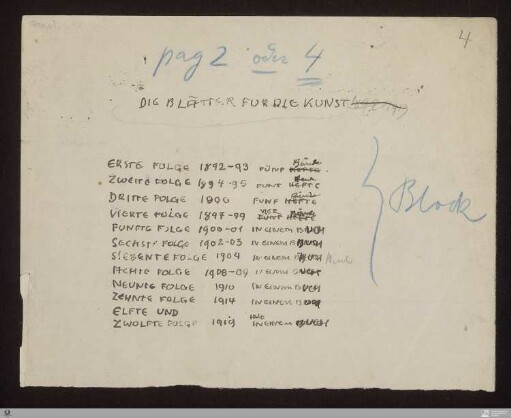 4
pag 2 oder 4
DIE BLÄTTER FUR DIE KUNST
ERSTE FOLGE 1892-93 FÜNF Bände HEFTE
ZWEITE FOLGE 1894-95 FÜNF HEFTE
DRITTE FOLGE 1896 FÜNF HEFTE
VIERTE FOLGE 1897-99 VIER FUNF HEFTE
FUNFTE FOLGE 1900-01 IN EINEM BUCH
SECHSTE FOLGE 1902-03 IN EINEM BUCH
SIEBENTE FOLGE 1904 IN EINEM BUCH
ACHTE FOLGE 1908-09 IN EINEM BUCH
NEUNTE FOLGE 1910 IN EINEM BUCH
ZEHNTE FOLGE 1914 IN EINEM BUCH
ELFTE UND
ZWÖLFTE FOLGE 1919 IN EINEM BUCH
Block